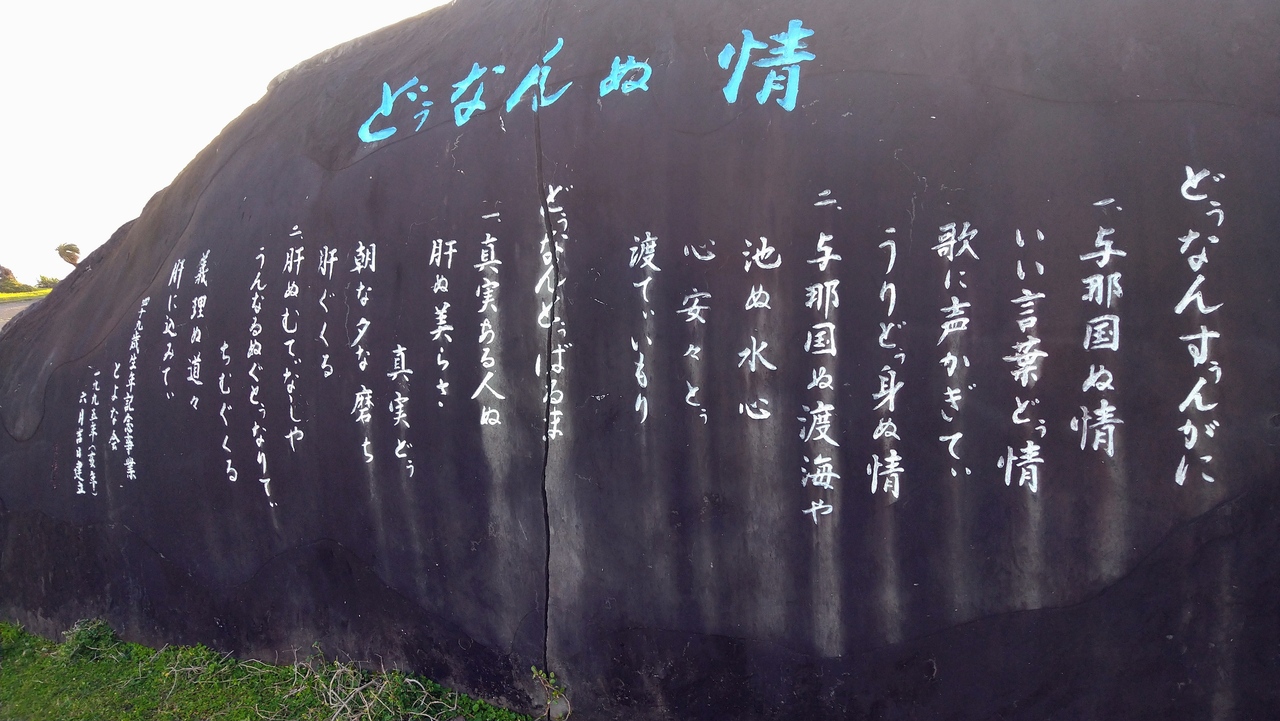 どぅなんぬ 情
どぅなんすぅんがに
一、与那国ぬ情
いい言葉どぅ情
歌に声かぎてぃ
うりどぅ身ぬ情
二、与那国ぬ渡海や
池ぬ水心
心安々とぅ
渡てぃいもり
どぅなんとぅばるま
一、真実ある人ぬ
肝ぬ美らさ
真実どぅ
朝な夕な磨ち
肝ぐくる
二、肝ぬむてぃなしや
うんなるぬぐとぅなりてぃ
ちむぐくる
義理ぬ道々
肝に込みてぃ
四十九歳生年記念事業
とよな会
一九九五年(亥年)
六月吉日建立